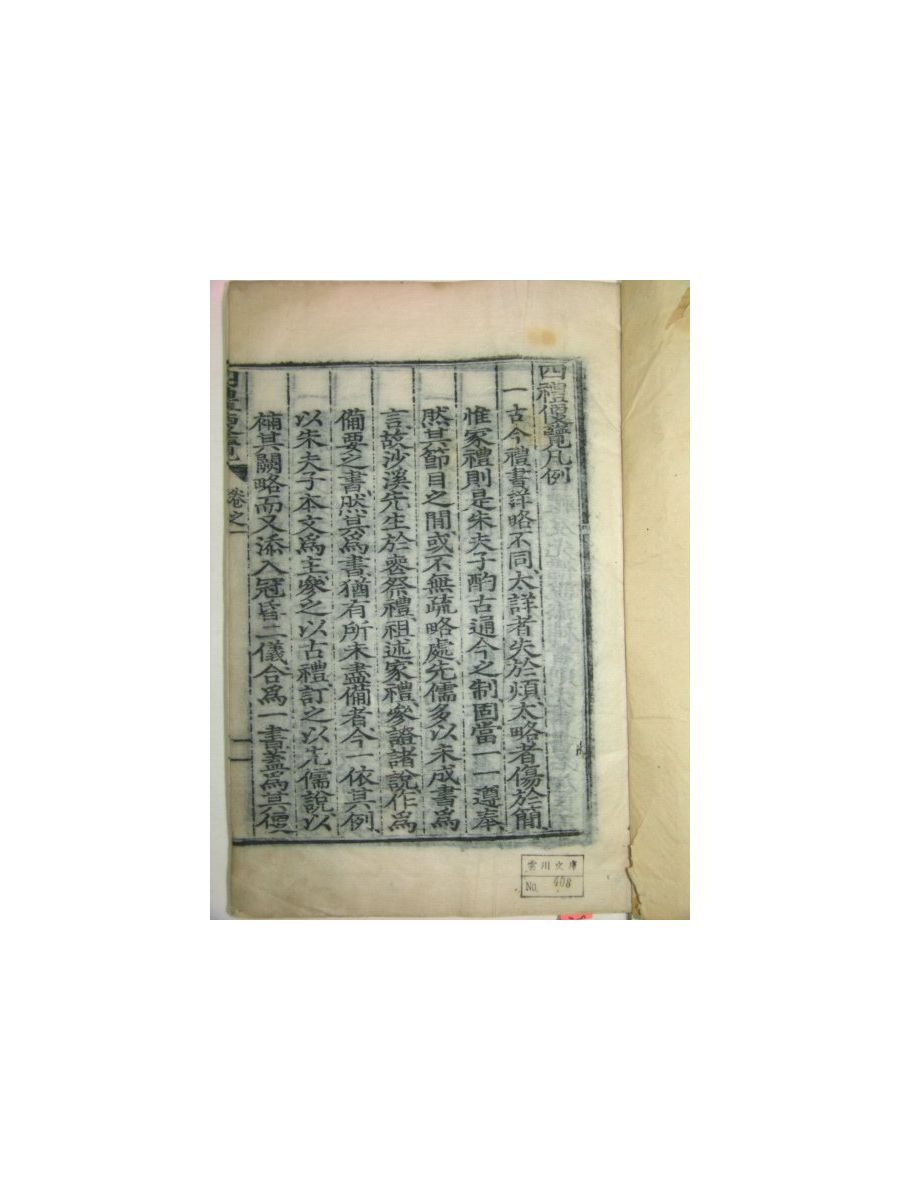 四禮便覽凡例
一古今禮書詳略不同太詳者失於煩太略者傷於簡
惟家禮則是朱夫子酌古通今之制固當一一遵奉
然其節目之間或不無疏略處先儒多以未成書爲
言故沙溪先生於喪祭禮祖述家禮參證諸說作爲
備要之書然其爲書猶有所未盡備者今一依其例
以朱夫子本文爲主參之以古禮訂之以先儒說以
補其闕略而又添入冠昏二儀合爲一書蓋爲其便
四禮便覽
卷之
雲川文庫
No. 408